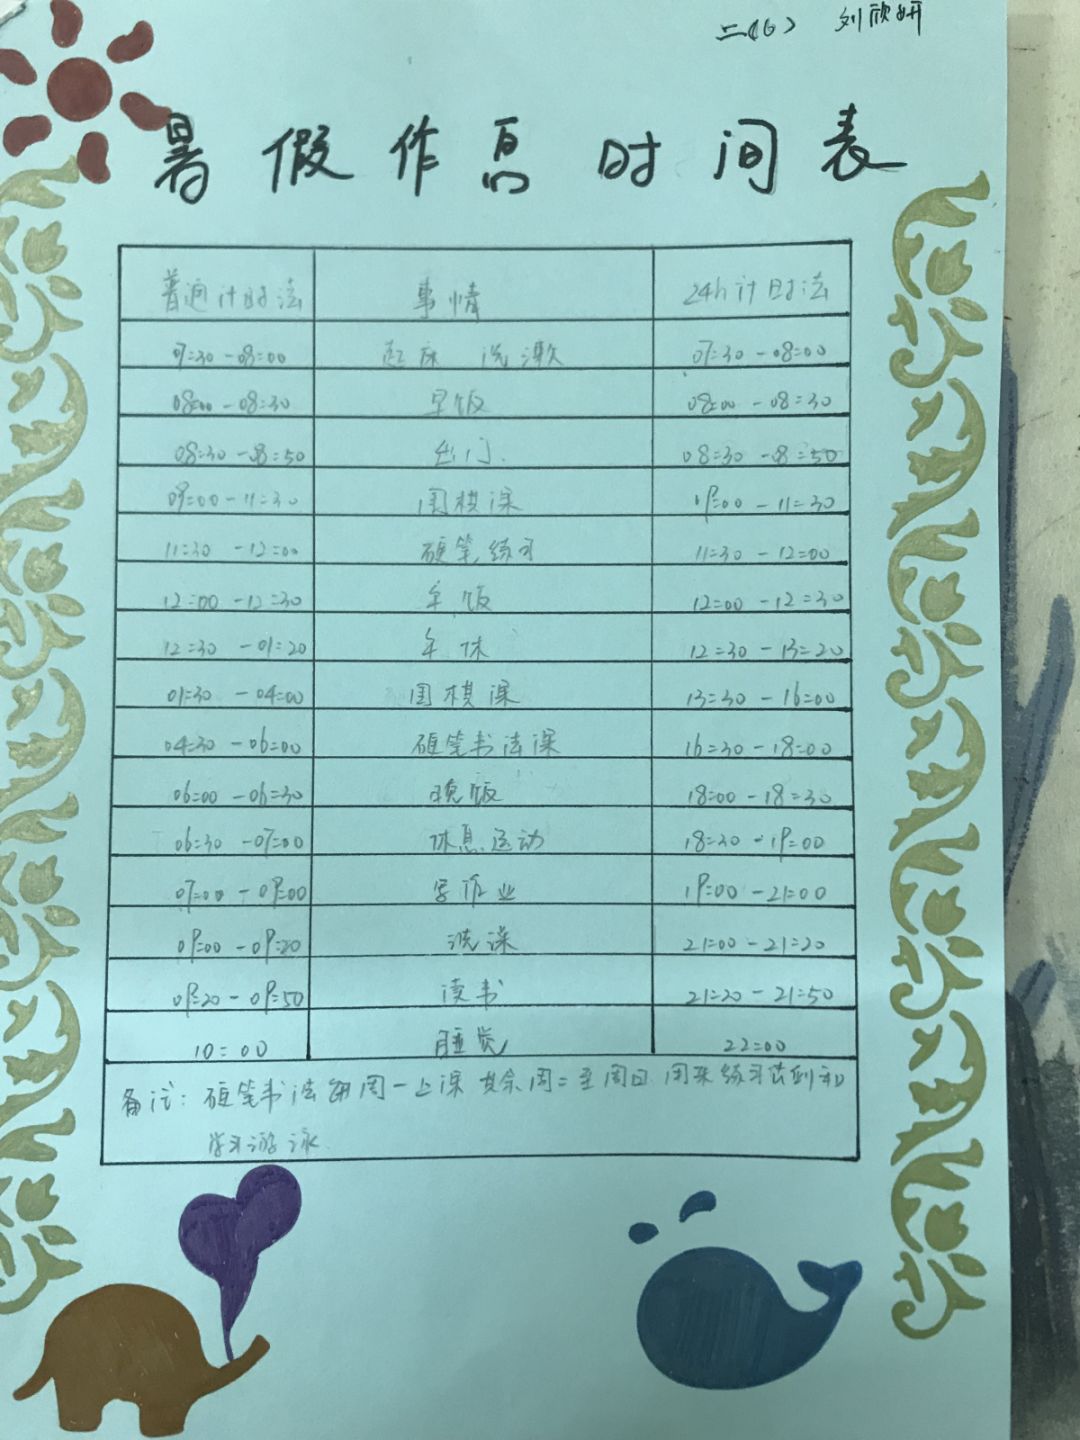 二(6) 刘欣妍
暑假作息时间表
普通计时法 事情 24h计时法
07:30-08:00 起床 洗漱 07:30-08:00
08:00-08:30 早饭 08:00-08:30
08:30-08:50 出门 08:30-08:50
09:00-11:30 围棋课 09:00-11:30
11:30-12:00 硬笔练习 11:30-12:00
12:00-12:30 午饭 12:00-12:30
12:30-01:20 午休 12:30-13:20
01:30-04:00 围棋课 13:30-16:00
04:30-06:00 硬笔书法课 16:30-18:00
06:00-06:30 晚饭 18:00-18:30
06:30-07:00 休息运动 18:30-19:00
07:00-09:00 写作业 19:00-21:00
09:00-09:20 洗澡 21:00-21:20
09:20-09:50 读书 21:20-21:50
10:00 睡觉 22:00
备注:硬笔书法每周一上课 其余周二至周日 用来练习 和
学习游泳